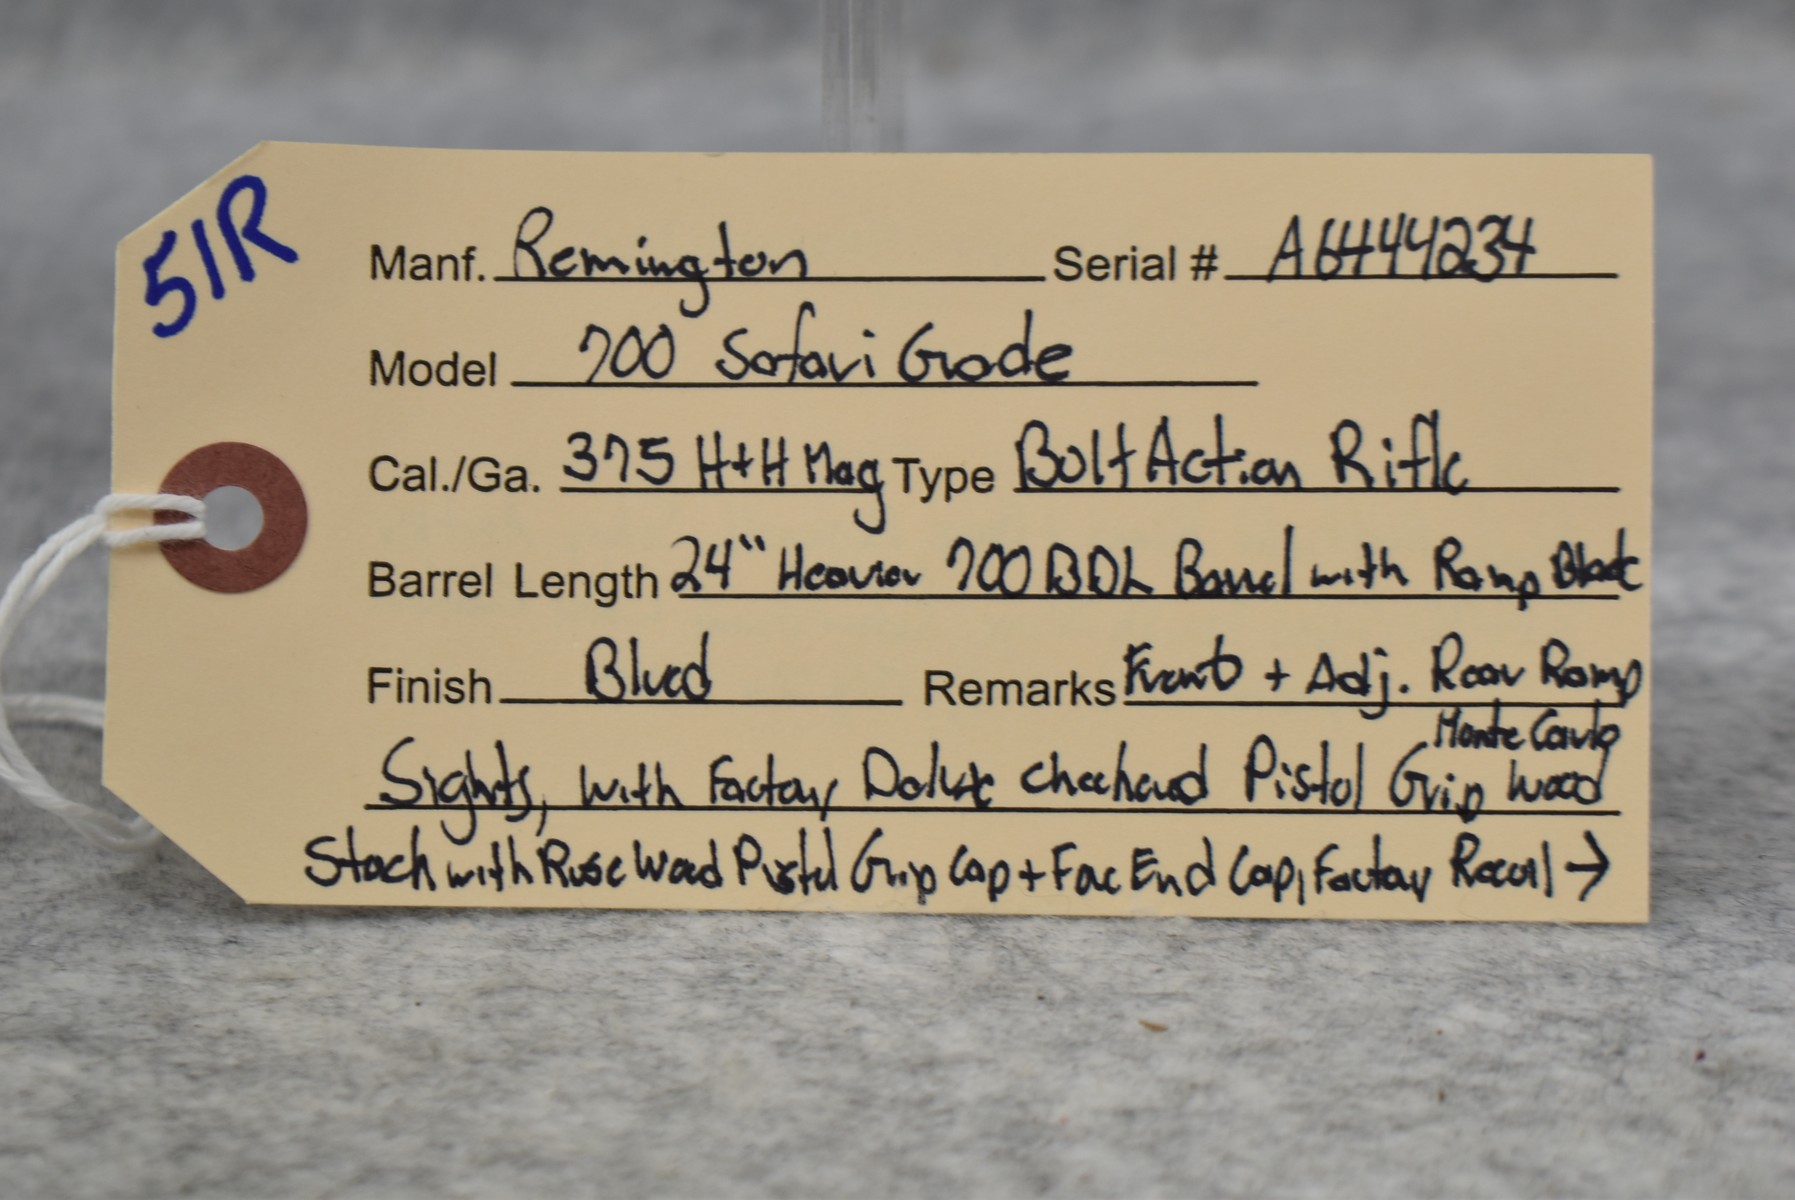 51R
Manf. Remington Serial # A6444234
Model 700 Safari Grade
Cal./Ga. 375 H+H Mag Type Bolt Action Rifle
Barrel Length 24" Heavier 700 BDL Barrel with Ramp Blade
Finish Blued Remarks Front + Adj. Rear Ramp
Monte Carlo
Sights, with Factory Deluxe Checkered Pistol Grip Wood
Stock with Rose Wood Pistol Grip Cap + Fore End Cap, Factory Recoil →